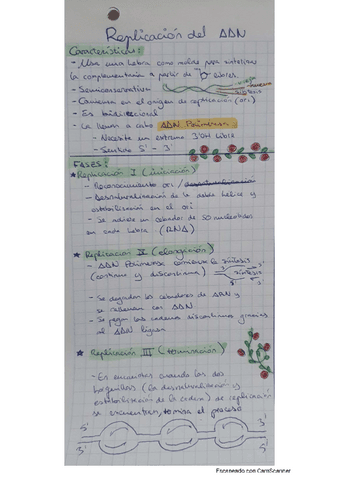 Replicación del ADN
Características:
- Usa una hebra como molde para sintetizar
la complementaria a partir de libres.
- Semiconservativa
- Comienza en el origen de replicación (ori)
- Es bidireccional
- La lleva a cabo ADN Polimerasa
- Necesita un extremo 3'OH libre
- Sentido 5' - 3'
FASES:
★ Replicación I (iniciación)
- Reconocimiento ori /
- Desnaturalización de la doble hélice y
estabilización en el ori
- Se añade un cebador de 50 nucleótidos
en cada hebra (RNA)
★ Replicación II (elongación)
- ADN Polimerasa continua la síntesis
(continua y discontinua)
- Se degradan los cebadores de ARN y
se rellenan con ADN
- Se pegan las cadenas discontinuas gracias
al ADN ligasa
★ Replicación III (terminación)
- Es cuando las dos
horquillas (la desnaturalización y
estabilización de la cadena) de replicación
se encuentran, termina el proceso
5' 3'
3' 5'
Escaneado con CamScanner